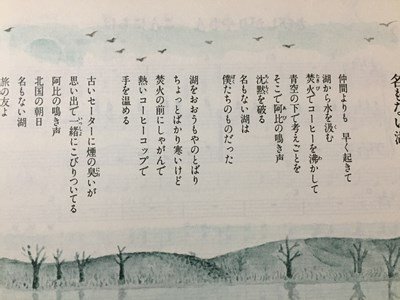 名もない湖
仲間よりも 早く起きて
湖から水を汲む
焚火でコーヒーを沸かして
青空の下で考えごとを
そこで阿比の鳴き声
沈黙を破る
名もない湖は
僕たちのものだった
湖をおおうもやのとばり
ちょっとばかり寒いけど
焚火の前にしゃがんで
熱いコーヒーコップで
手を温める
古いセーターに煙の臭いが
思い出と一緒にこびりついてる
阿比の鳴き声
北国の朝日
名もない湖
旅の友よ